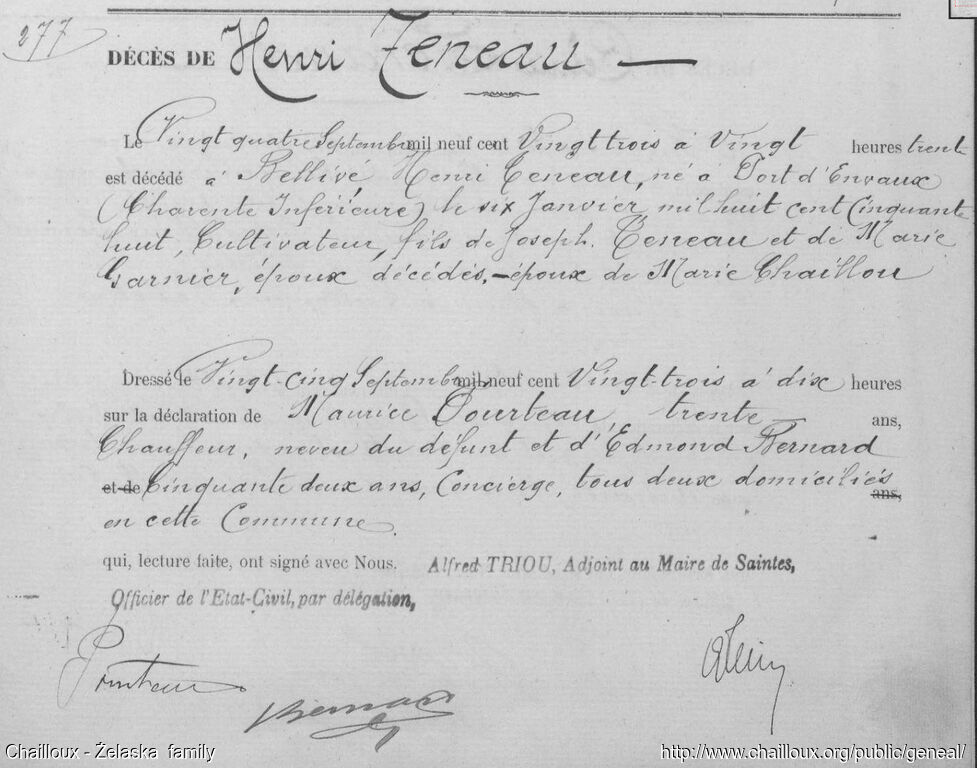 277
DÉCÈS DE Henri Teneau —
Le Vingt quatre Septembre mil neuf cent Vingt trois à Vingt heures trente
est décédé à Bellivé Henri Teneau, né à Port d'Envaux
(Charente Inférieure) le six Janvier mil huit cent Cinquante
huit, Cultivateur, fils de Joseph Teneau et de Marie
Garnier, époux décédés, — époux de Marie Chaillou
Dressé le Vingt-cinq Septembre mil neuf cent Vingt-trois à dix heures
sur la déclaration de Maurice trente ans,
Chauffeur, neveu du défunt et d'Edmond Bernard
et de Cinquante deux ans, Concierge, tous deux domiciliés ans,
en cette Commune.
qui, lecture faite, ont signé avec Nous. Alfred TRIOU, Adjoint au Maire de Saintes,
Officier de l'Etat-Civil, par délégation,
Bernard
Chailloux - Żelaska family
http://www.chailloux.org/public/geneal/